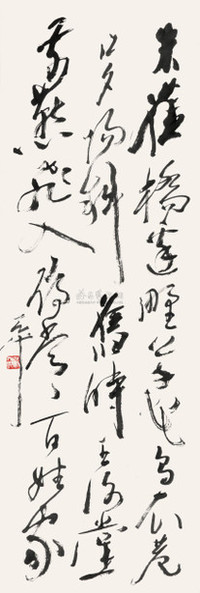 朱雀橋邊野草花烏衣巷
口夕陽斜舊時王謝堂
前燕飛入尋常百姓家